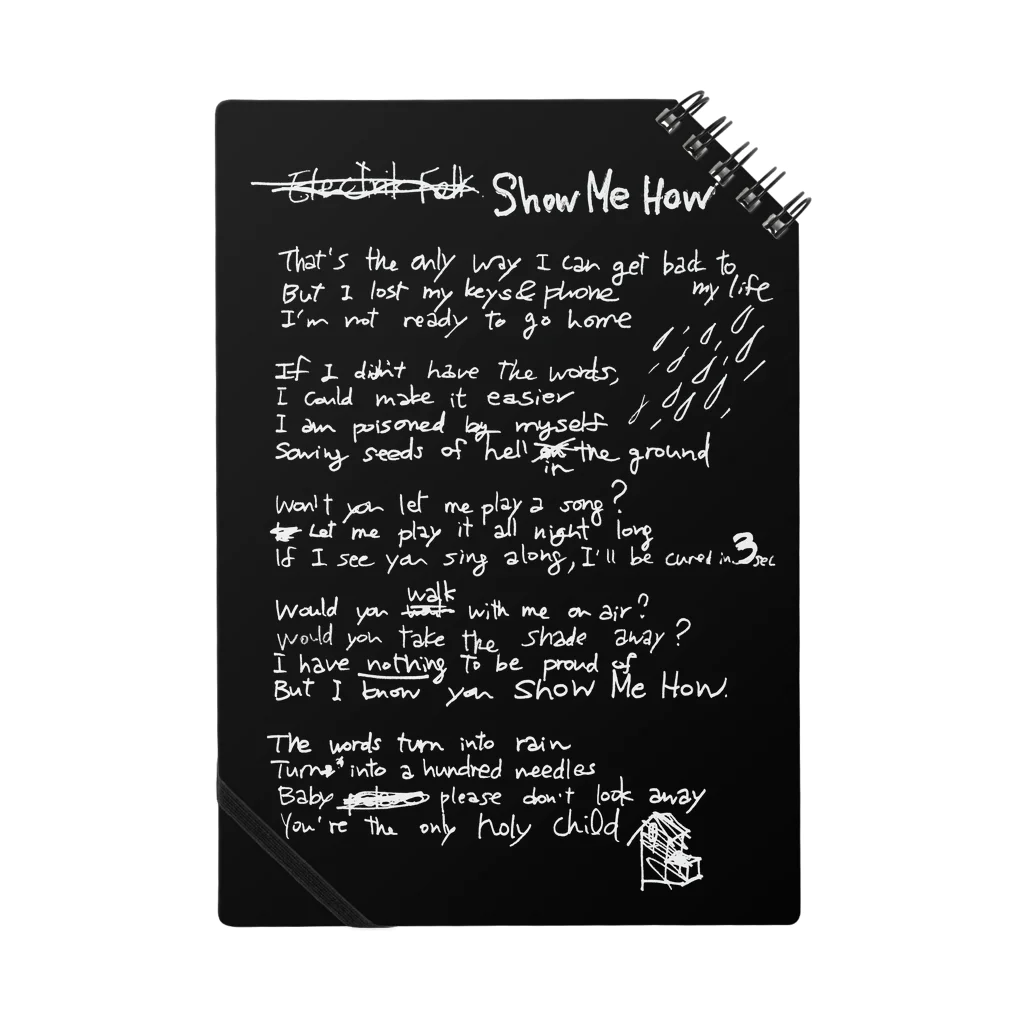 Electrik Folk Show Me How
That's the only way I can get back to
my life
But I lost my keys & phone
I'm not ready to go home
If I didn't have the words,
I could make it easier
I am poisoned by myself
Sowing seeds of hell in the ground
Won't you let me play a song?
Let me play it all night long
If I see you sing along, I'll be cured in 3 sec
Would you walk with me on air?
Would you take the shade away?
I have nothing to be proud of
But I know you Show Me How.
The words turn into rain
Turn into a hundred needles
Baby please don't look away
You're the only holy child